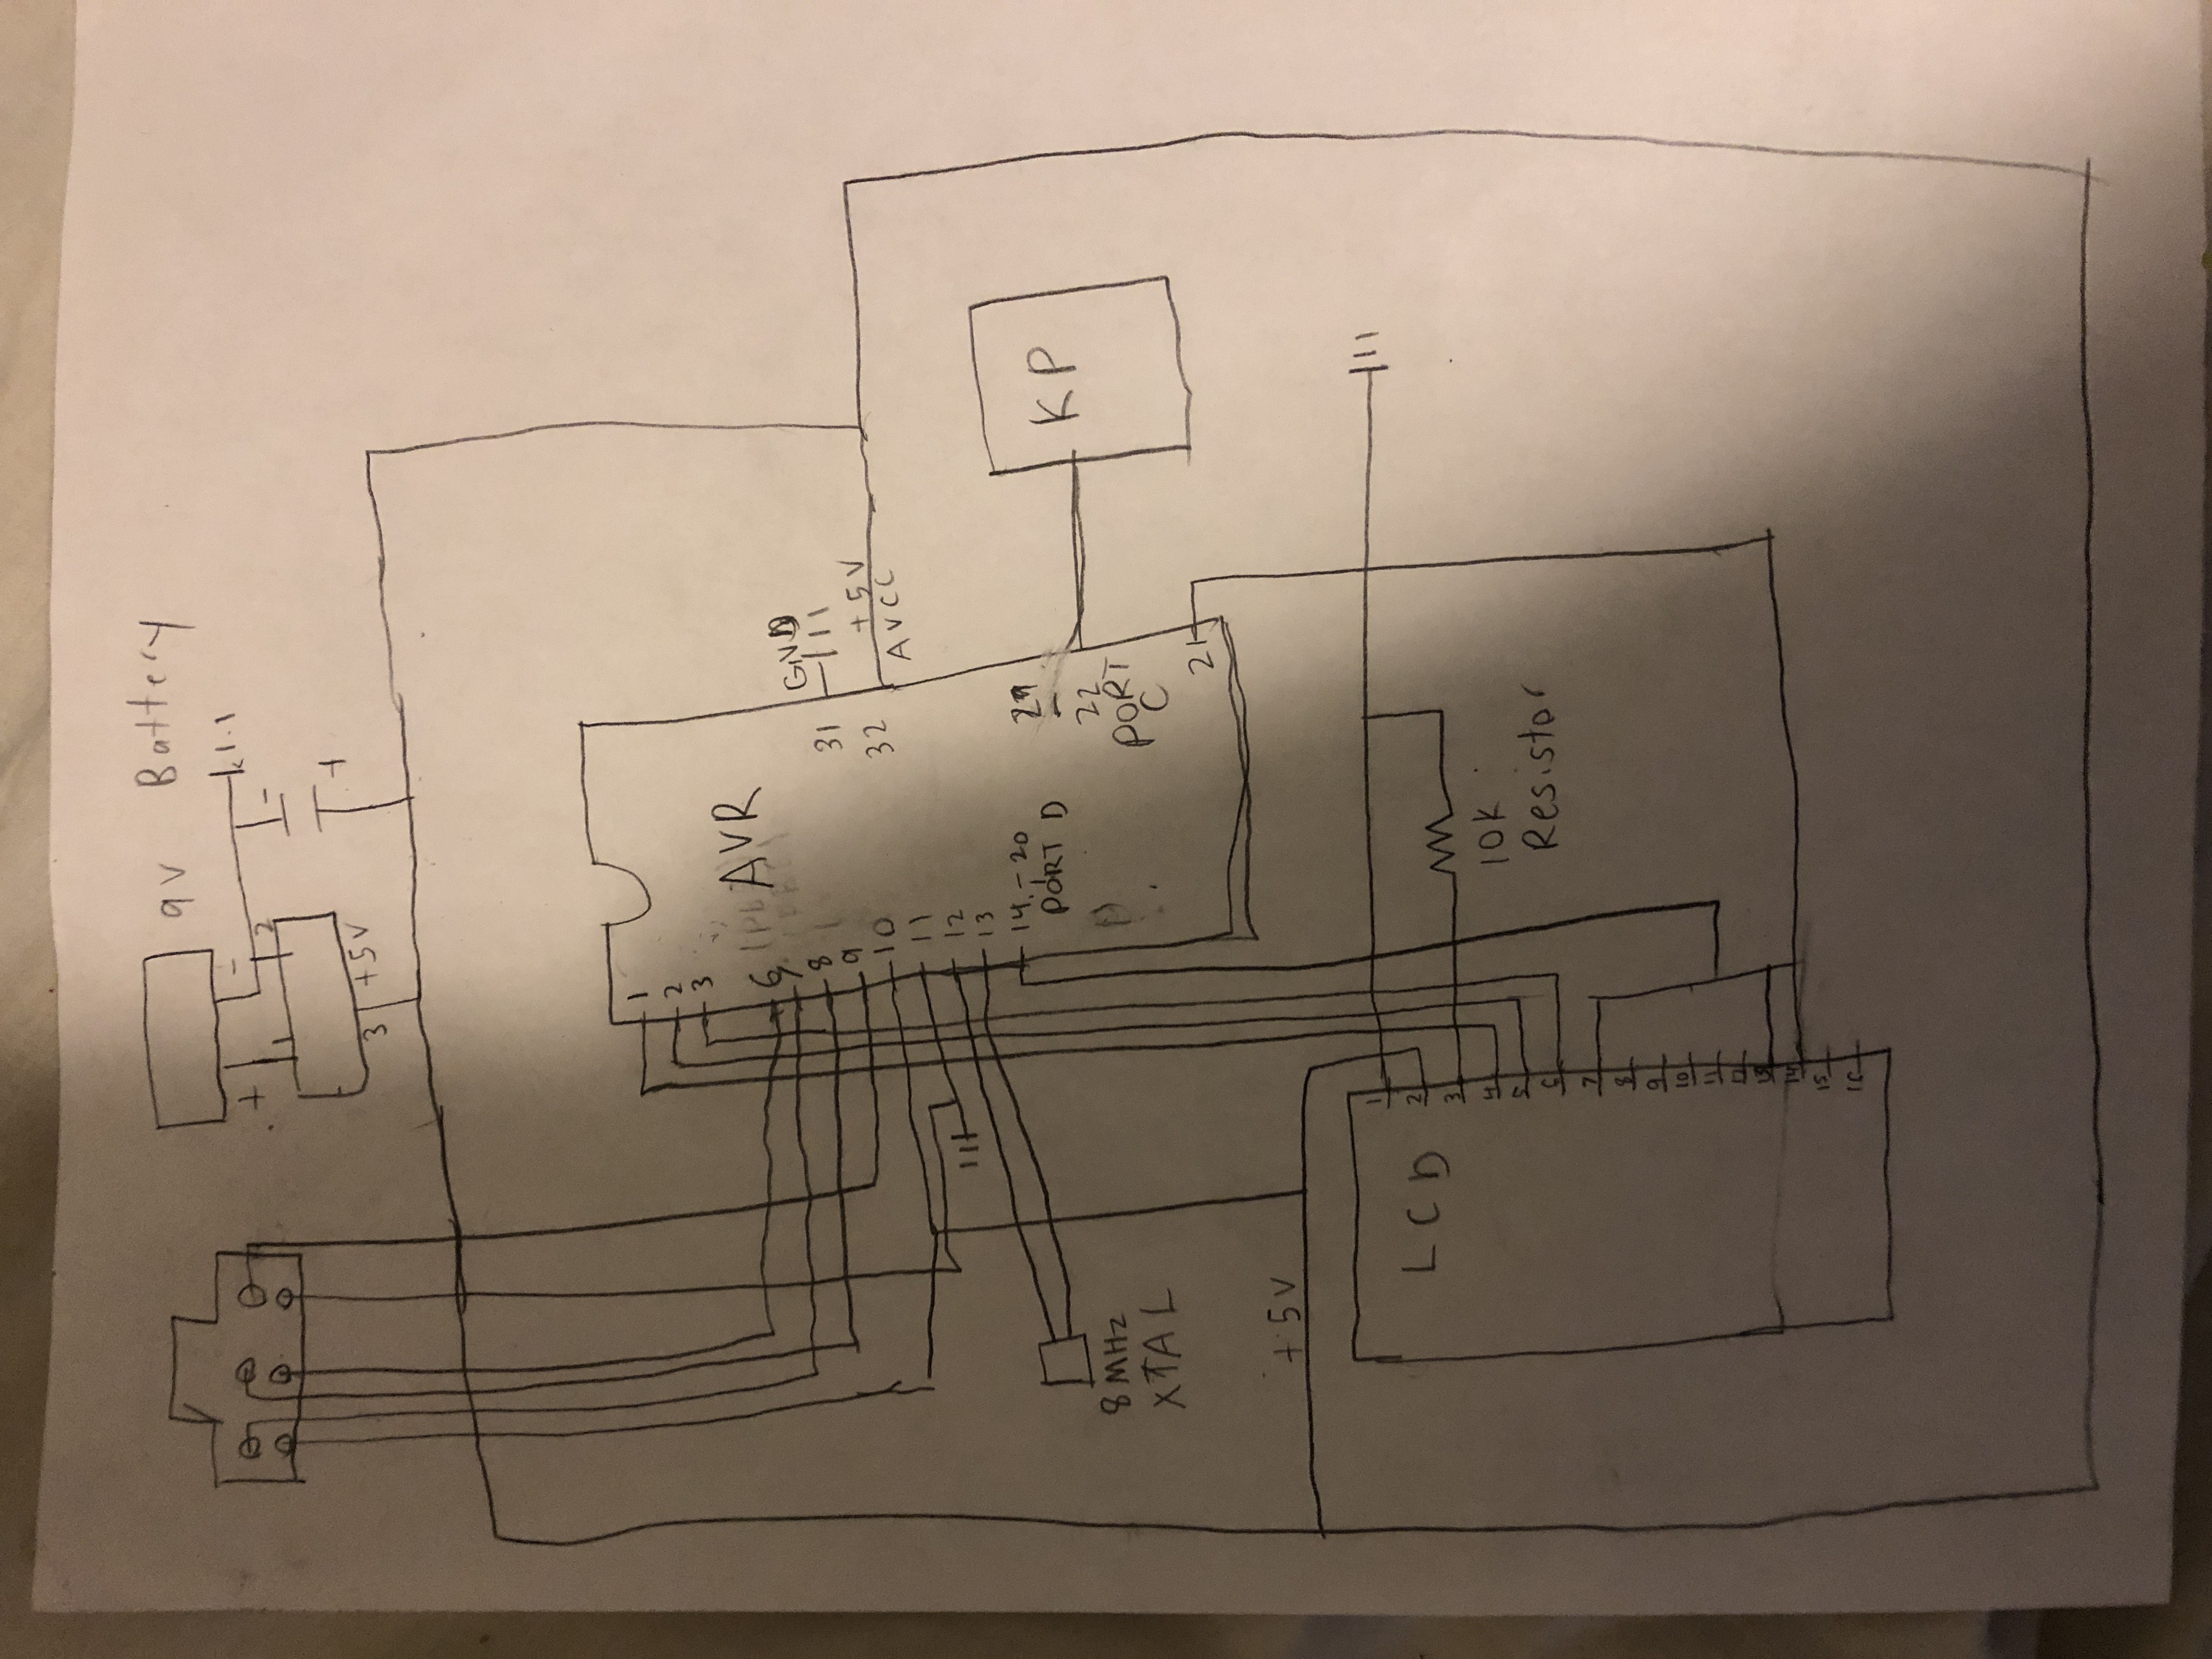 9V Battery
+ -
1 2
-
+
3 +5V
1
2
3
AVR
6
7
8
9
10
11
12
13
14 - 20
PORT D
GND
31
+5V
32
AVCC
29
-
22
PORT
C
21
KP
8 MHz
XTAL
+5V
LCD
1
2
3
4
5
6
7
8
9
10
11
12
13
14
15
16
10K
Resistor